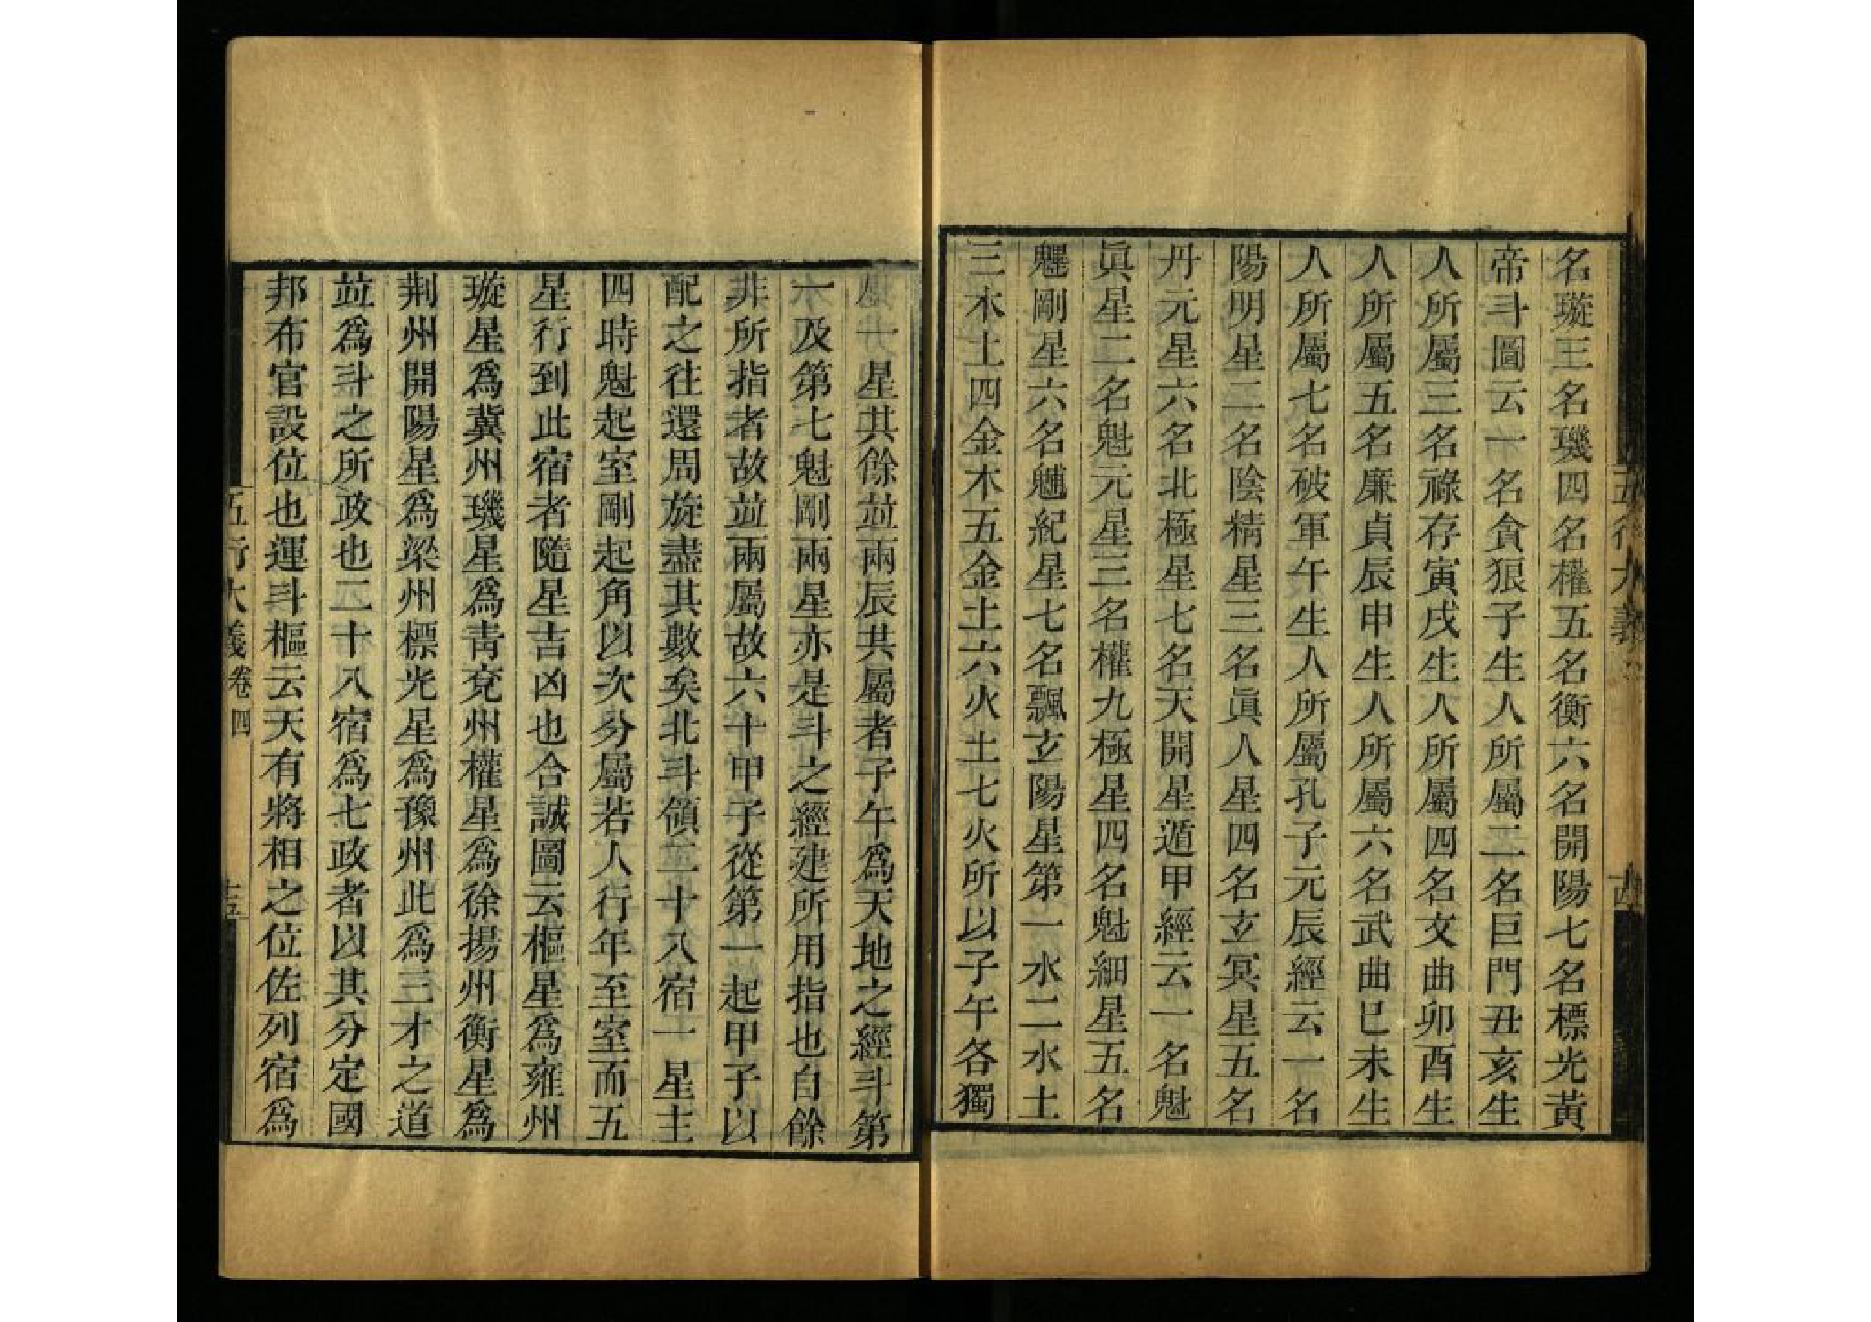 名璇三名璣四名權五名衡六名開陽七名標光黃
帝斗圖云一名貪狼子生人所屬二名巨門丑亥生
人所屬三名祿存寅戌生人所屬四名文曲卯酉生
人所屬五名廉貞辰申生人所屬六名武曲巳未生
人所屬七名破軍午生人所屬孔子元辰經云一名
陽明星二名陰精星三名眞人星四名玄冥星五名
丹元星六名北極星七名天開星遁甲經云一名魁
眞星二名魁元星三名權九極星四名魁細星五名
剛星六名紀星七名飄玄陽星第一水二水土
三木土四金木五金土六火土七火所以子午各獨
五行大義
十四
一星其餘並兩辰共屬者子午爲天地之經斗第
一及第七魁剛兩星亦是斗之經建所用指也自餘
非所指者故並兩屬故六十甲子從第一起甲子以
配之往還周旋盡其數矣北斗領二十八宿一星主
四時魁起室剛起角以次分屬若人行年至室而五
星行到此宿者隨星吉凶也合誠圖云樞星爲雍州
璇星爲冀州璣星爲青兗州權星爲徐揚州衡星爲
荆州開陽星爲梁州標光星爲豫州此爲三才之道
並爲斗之所政也二十八宿爲七政者以其分定國
邦布官設位也運斗樞云天有將相之位佐列宿爲
五行大義卷四
十五